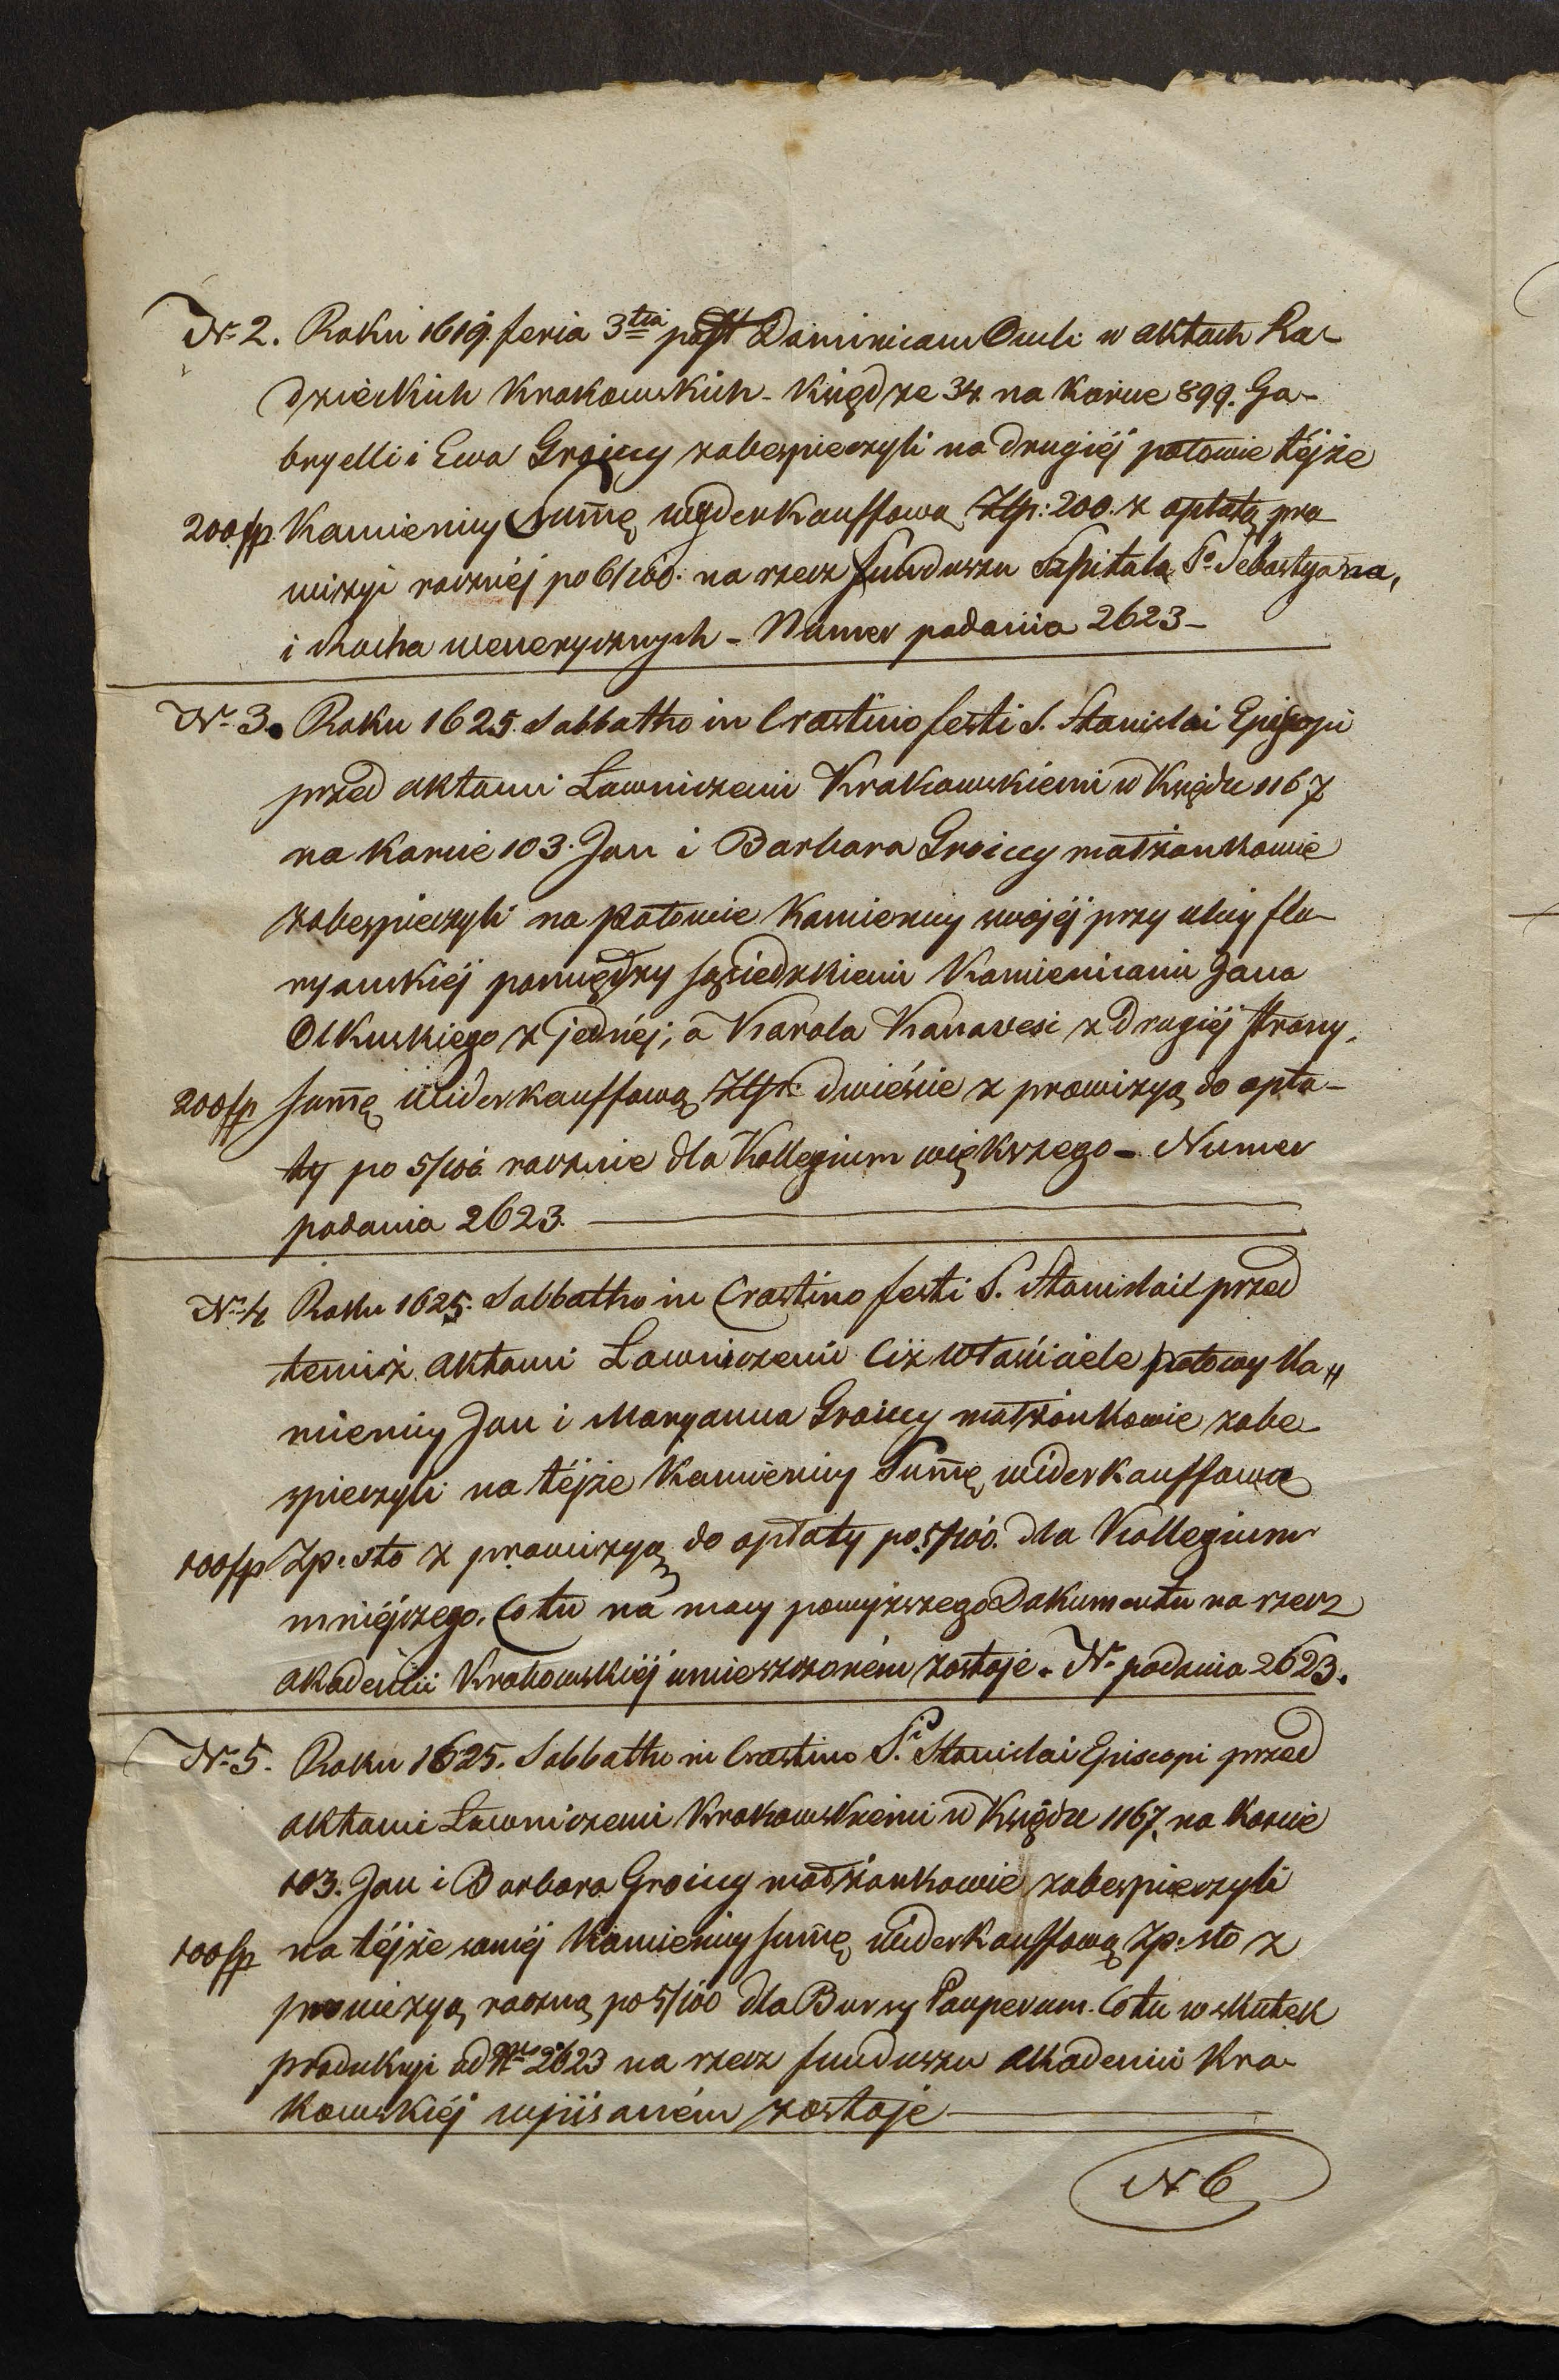 N. 2. Roku 1619. feria 3tia post Dominicam Oculi w aktach Ra-
dzieckich Krakowskich - Księdze 34 na karcie 899. Ga-
bryelli i Ewa Groiccy zabespieczyli na drugiéj połowie téjże
200 fp. Kamienicy Summę wyderkauffową Złp: 200. z opłatą pro
wizyi roczniéj po 6/100. na rzecz funduszu Szpitala So Sebastyana,
i Rocha wenerycznych - Numer podania 2623 -
N. 3. Roku 1625. Sabbatho in Crastino festi S. Stanislai Episcopi
przed aktami Ławniczemi Krakowskiemi w Księdze 1167
na karcie 103. Jan i Barbara Groiccy małżonkowie
zabespieczyli na połowie Kamienicy swojéj przy ulicy flo-
ryanskiéj pomiędzy sąsiedzkiemi Kamienicami Jana
Olkuskiego z jednéj, a Karola Kanavesi z drugiéj strony,
200 fp summę widerkauffową Złp: dwieście z prowizyą do opła-
ty po 5/100 rocznie dla Kollegium większego - Numer
podania 2623.
N. 4 Roku 1625. Sabbatho in Crastino festi S. Stanislai przed
temiż aktami Ławniczemi Ciż właściciele połowy Ka„
mienicy Jan i Maryanna Groiccy małżonkowie zabe
spieczyli na téjże Kamienicy Summę widerkauffową
100 fp Zp: sto z prowizyą do opłaty po 5/100. dla Kollegium
mniéjszego. Co tu na mocy powyższego Dokumentu na rzecz
akademii Krakowskiéj umieszczoném zostaje. N. podania 2623.
N. 5. Roku 1625. Sabbatho in Crastino Si Stanislai Episcopi przed
aktami Ławniczemi Krakowskiemi w Księdze 1167, na karcie
103. Jan i Barbara Groiccy małżonkowie zabespieczyli
100 fp na téjże saméj Kamienicy summę widerkauffową Zp: sto z
prowizyą roczną po 5/100 dla Bursy Pauperum. Co tu w skutek
produkcyi ad Nrum 2623 na rzecz funduszu akademii Kra-
kowskiéj wpisaném zostaje
N 6